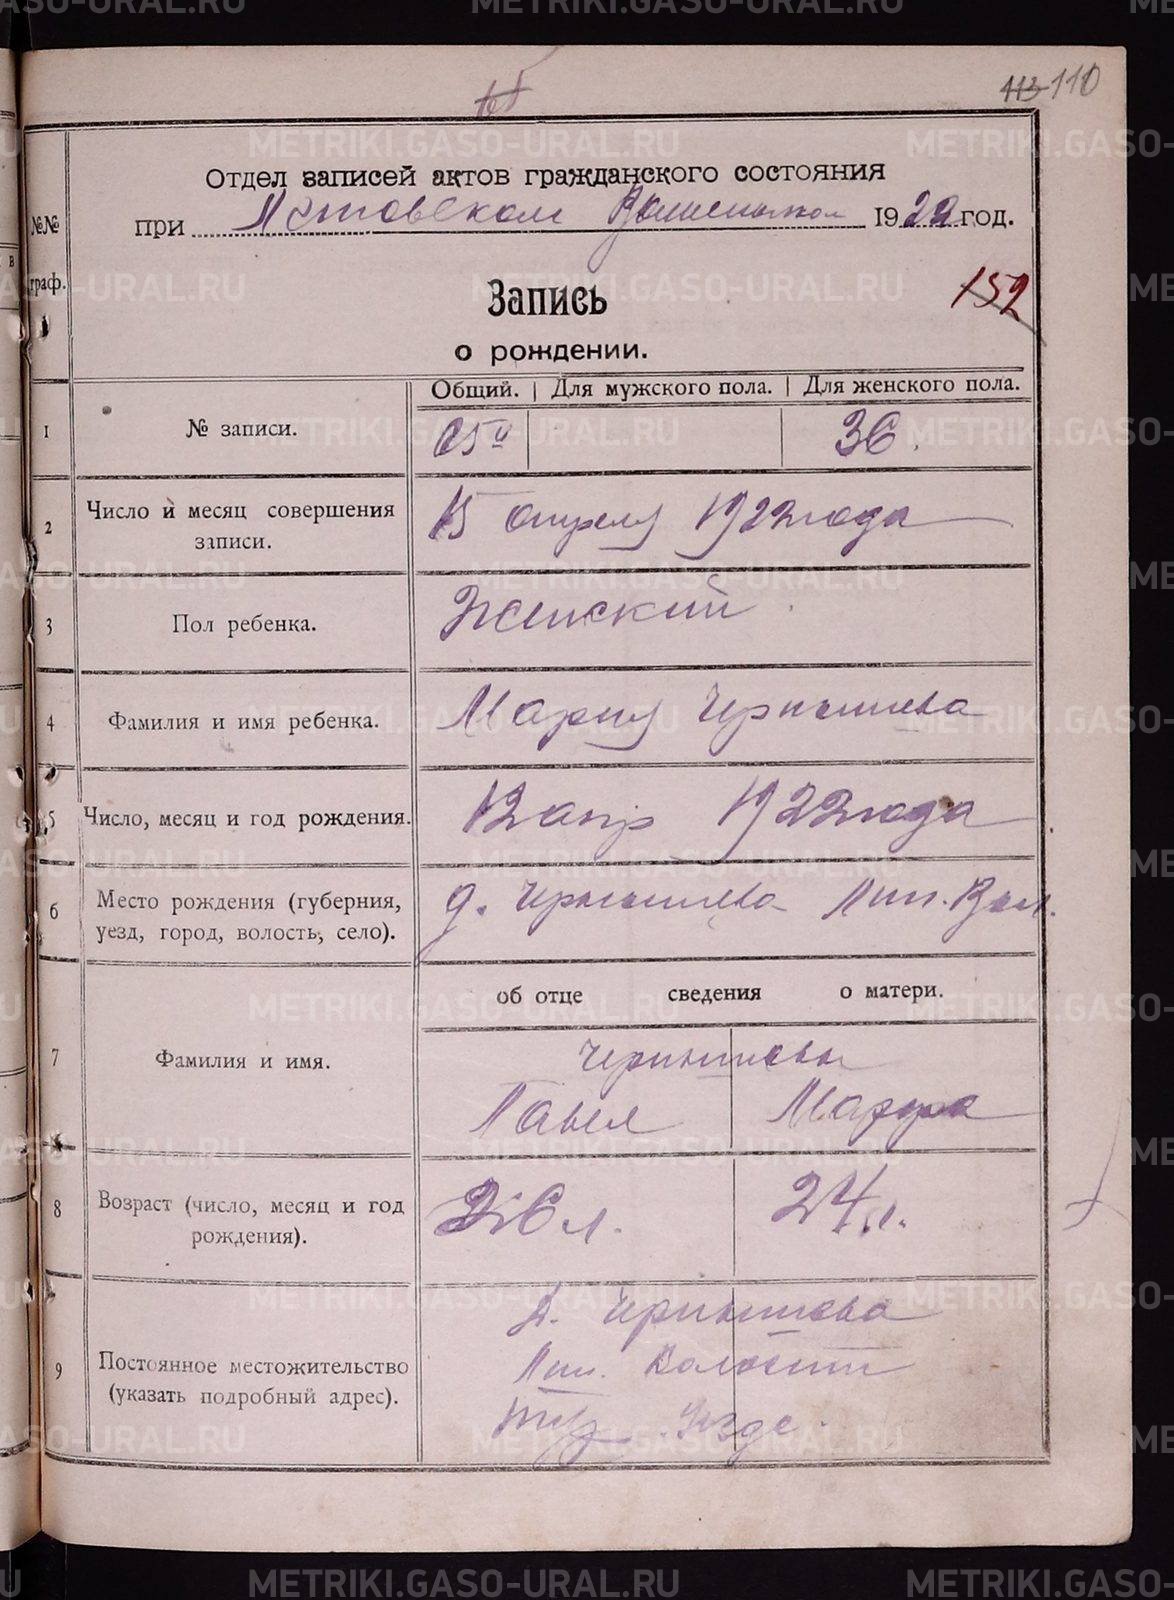 113 110
Отдел записей актов гражданского состояния
при Волисполком 1922 год.
№№ граф.
152
Запись
о рождении.
Общий. Для мужского пола. Для женского пола.
1 № записи. 65й 36.
2 Число и месяц совершения записи. 15 апреля 1922 года
3 Пол ребенка. Женский
4 Фамилия и имя ребенка. Мария Чернышева
5 Число, месяц и год рождения. 12 апр 1922 года
6 Место рождения (губерния, уезд, город, волость, село). д. Чернышева Лип. Вол.
об отце сведения о матери.
7 Фамилия и имя. Чернышевы
Павел Марфа
8 Возраст (число, месяц и год рождения). 26 л. 24 л.
9 Постоянное местожительство (указать подробный адрес). д. Чернышева
Лип. Волости
уезде
METRIKI.GASO-URAL.RU